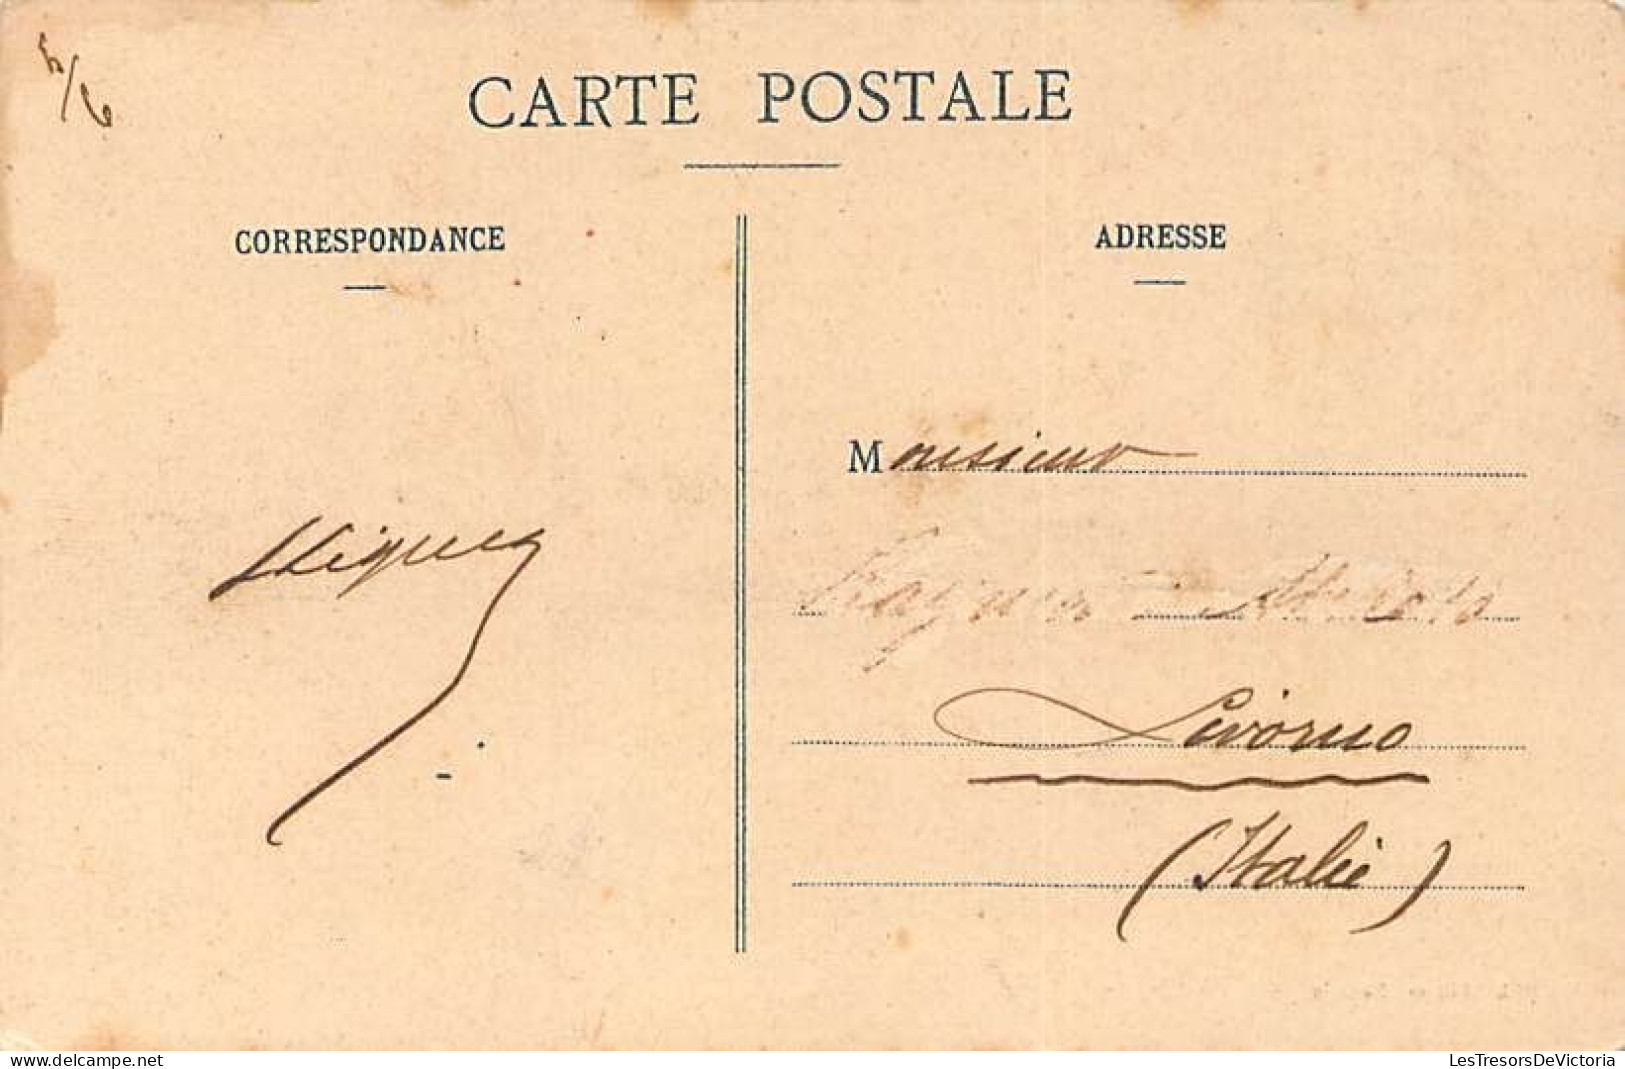 5/6
CARTE POSTALE
CORRESPONDANCE
ADRESSE
Monsieur
Livorno
(Italie)
delcampe.net
LesTresorsDeVictoria